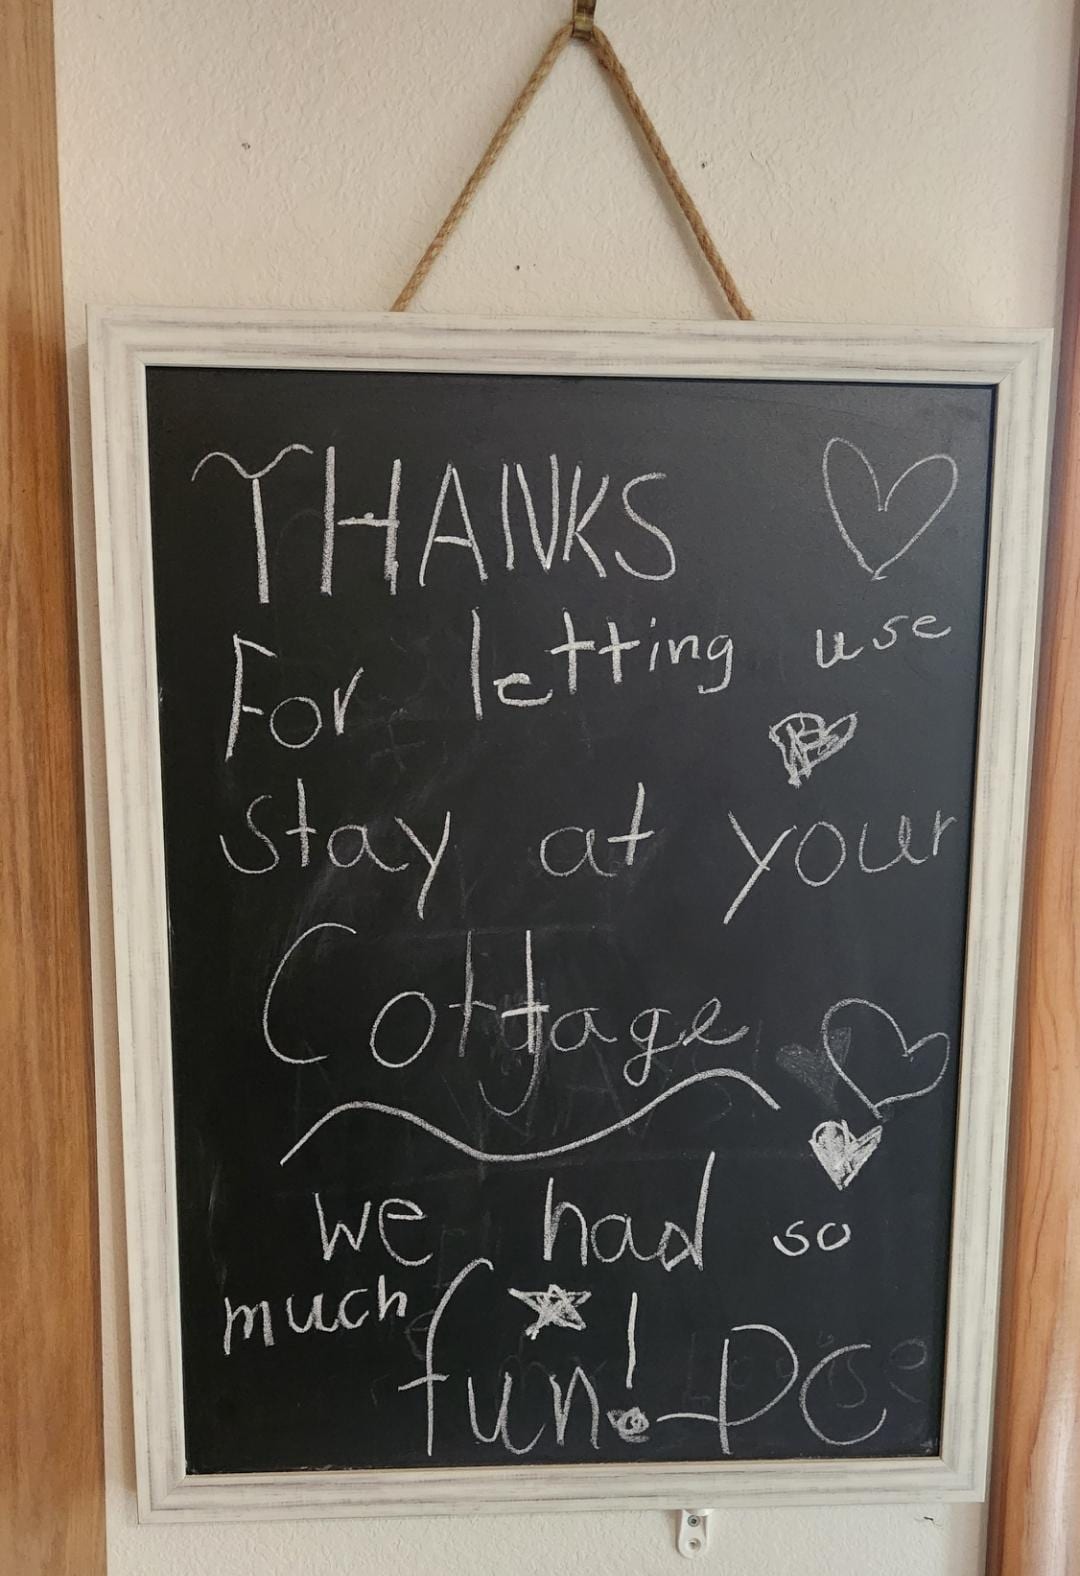 THANKS
For letting use
stay at your
Cottage
we had so
much
fun! -PC